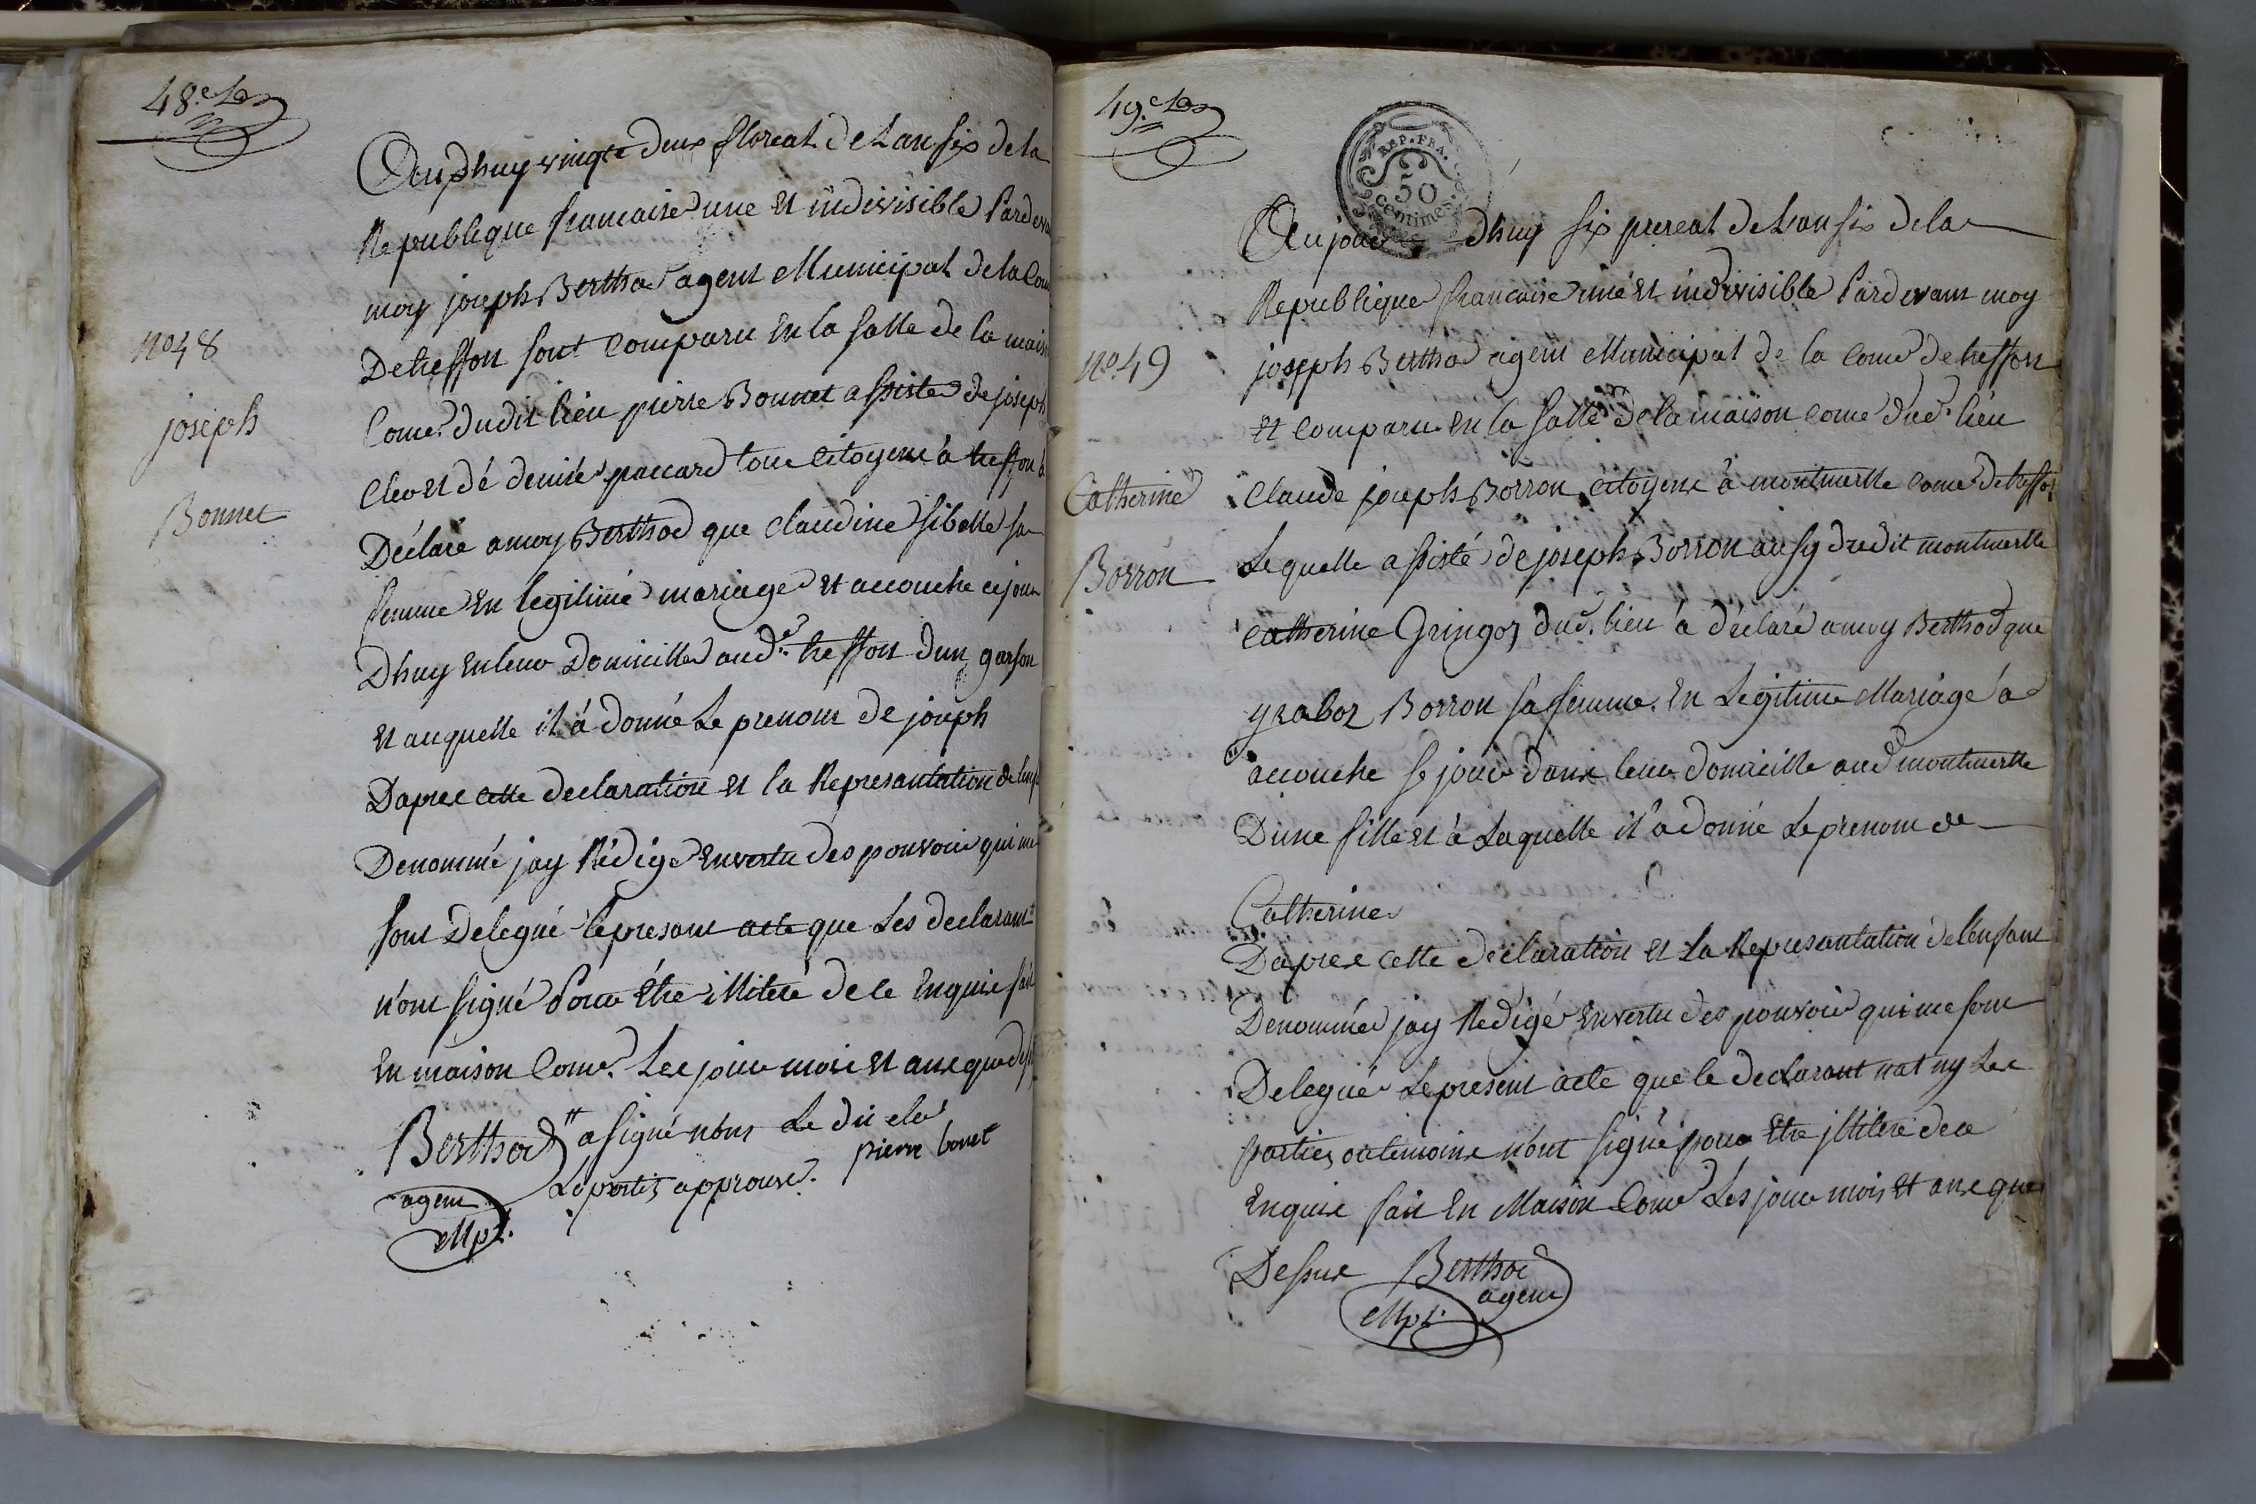 48.e
Aujdhuy vingte deux floreal de Lan six de la
Republique francaise une Et indivisible Pardeva
moy joseph Berthod agent Municipal de la Com
De treffon sont Comparu En la salle de la mais
Come. dudit lieu pierre Bonnet assisté de joseph
Clert dé denise paccard tous Citoyens à treffon à
Déclaré a moy Berthod que Claudine sibelle sa
femme En legitime mariage Et accouche ce jour
Dhuy En leur Domicille aud. treffon dun garson
Et auquelle il à donné Le prenom de joseph
Dapres cette declaration et la Represantation de lenf
Denommé jay Rédigé En vertu des pouvoir qui me
sont Delegué le presant acte que Les declarant
n'ont signé Pour Être illiteré de le Enquis fait
En maison Come. Les jour mois Et ans que des
Berthod a signé nons Le du
agent Mpl.
Le partis approuvé. pierre bonet
no 48
joseph
Bonnet
49.e
REP. FRA.
50
centimes
Aujour dhuy six prereal de Lan six de la
Republique francaise une Et indivisible Pardevant moy
joseph Berthod agent Municipal de la Come de treffon
Et Comparu En la salle de la maison Come dud. lieu
Claude joseph Borron Citoyens à montmerle Come de treffon
Lequelle assisté de joseph Borron aussy dudit montmerle
Catherine Gringoz dud. lieu à déclaré a moy Berthod que
yzaboz Borron sa femme En Legitime Mariage à
accouche se jour dans leur domicille aud montmerle
Dune fille et à Laquelle il à donné Le prenom de
Catherine
Dapres cette declaration Et La Represantation de l'enfant
Denommée jay Redigé En vertu des pouvoir qui me sont
Delegué Le present acte que le declarant nat ny Les
parties ou temoins n'ont signé pour Etre illiteré de ce
Enquis fait En Maison Come Les jour mois Et ans que
Dessus Berthod
agent
Mpl.
no. 49
Catherine
Borron